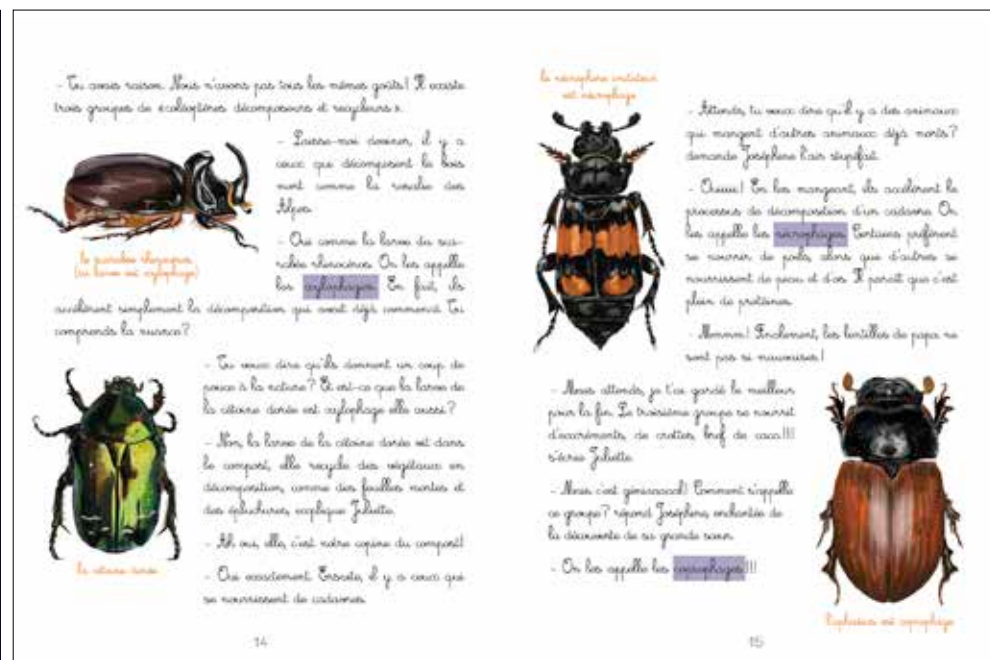 - Tu avais raison. Nous n'avons pas tous les mêmes goûts! Il existe
trois groupes de «coléoptères décomposeurs et recycleurs ».
- Laisse-moi deviner, il y a
ceux qui décomposent le bois
mort comme la rosalie des
Alpes.
- Oui comme la larve du sca-
rabée rhinocéros. On les appelle
les xylophages. En fait, ils
le scarabée rhinocéros
(sa larve est xylophage)
accélèrent simplement la décomposition qui avait déjà commencé. Tu
comprends la nuance?
- Tu veux dire qu'ils donnent un coup de
pouce à la nature? Et est-ce que la larve de
la cétoine dorée est xylophage elle aussi?
- Non, la larve de la cétoine dorée vit dans
le compost, elle recycle des végétaux en
décomposition, comme des feuilles mortes et
des épluchures, explique Juliette.
- Ah oui, elle, c'est notre copine du compost!
- Oui exactement. Ensuite, il y a ceux qui
se nourrissent de cadavres.
la cétoine dorée
14
le nécrophore imitateur
est nécrophage
- Attends, tu veux dire qu'il y a des animaux
qui mangent d'autres animaux déjà morts?
demande Joséphine l'air stupéfait.
- Ouiiii! En les mangeant, ils accélèrent le
processus de décomposition d'un cadavre. On
les appelle les nécrophages. Certains préfèrent
se nourrir de poils, alors que d'autres se
nourrissent de peau et d'os. Il paraît que c'est
plein de protéines.
- Mmmm! Finalement, les lentilles de papa ne
sont pas si mauvaises!
- Mais attends, je t'ai gardé le meilleur
pour la fin. Le troisième groupe se nourrit
d'excréments, de crottes, bref de caca!!!
s'écrie Juliette.
- Mais c'est géniaaaal! Comment s'appelle
ce groupe? répond Joséphine, enchantée de
la découverte de sa grande sœur.
- On les appelle les coprophages!!!
l'aphodius est coprophage
15